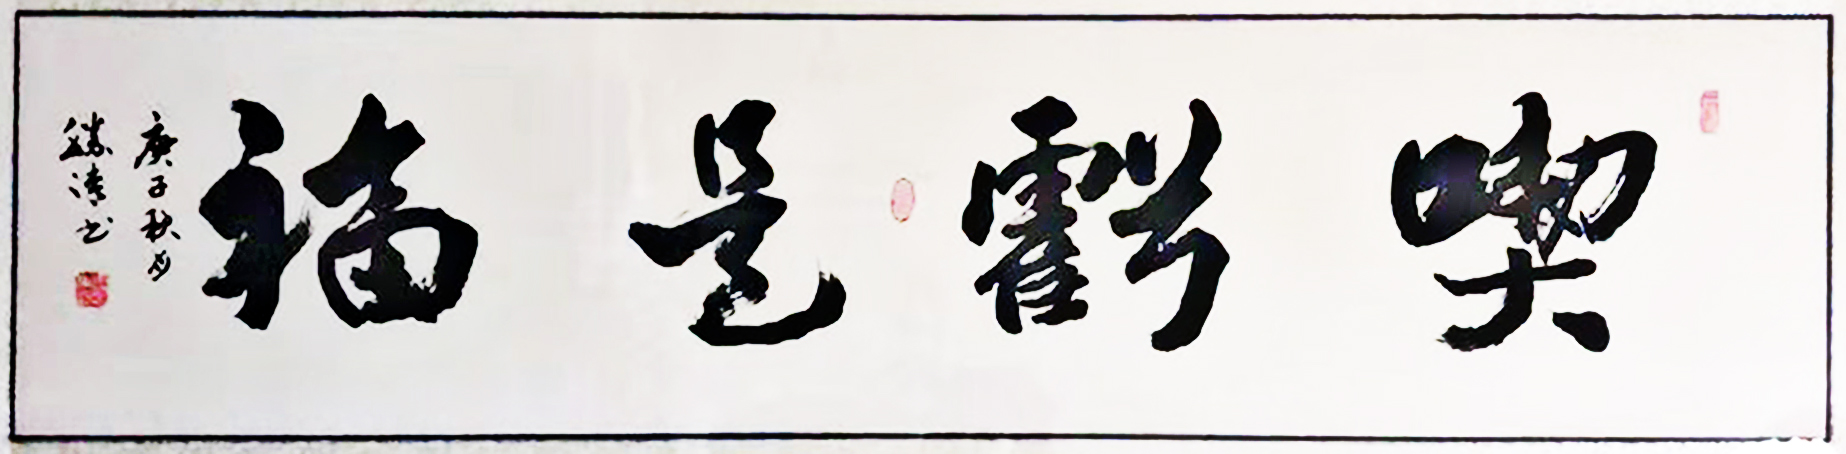 喫虧是福
庚子秋月
勝濤书